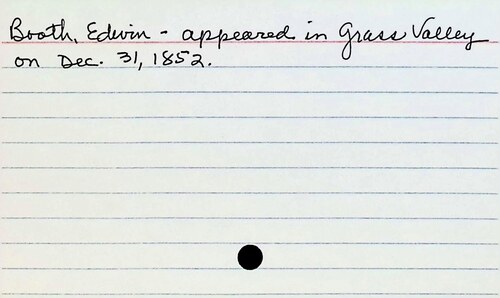 Booth, Edwin - appeared in Grass Valley
on Dec. 31, 1852.